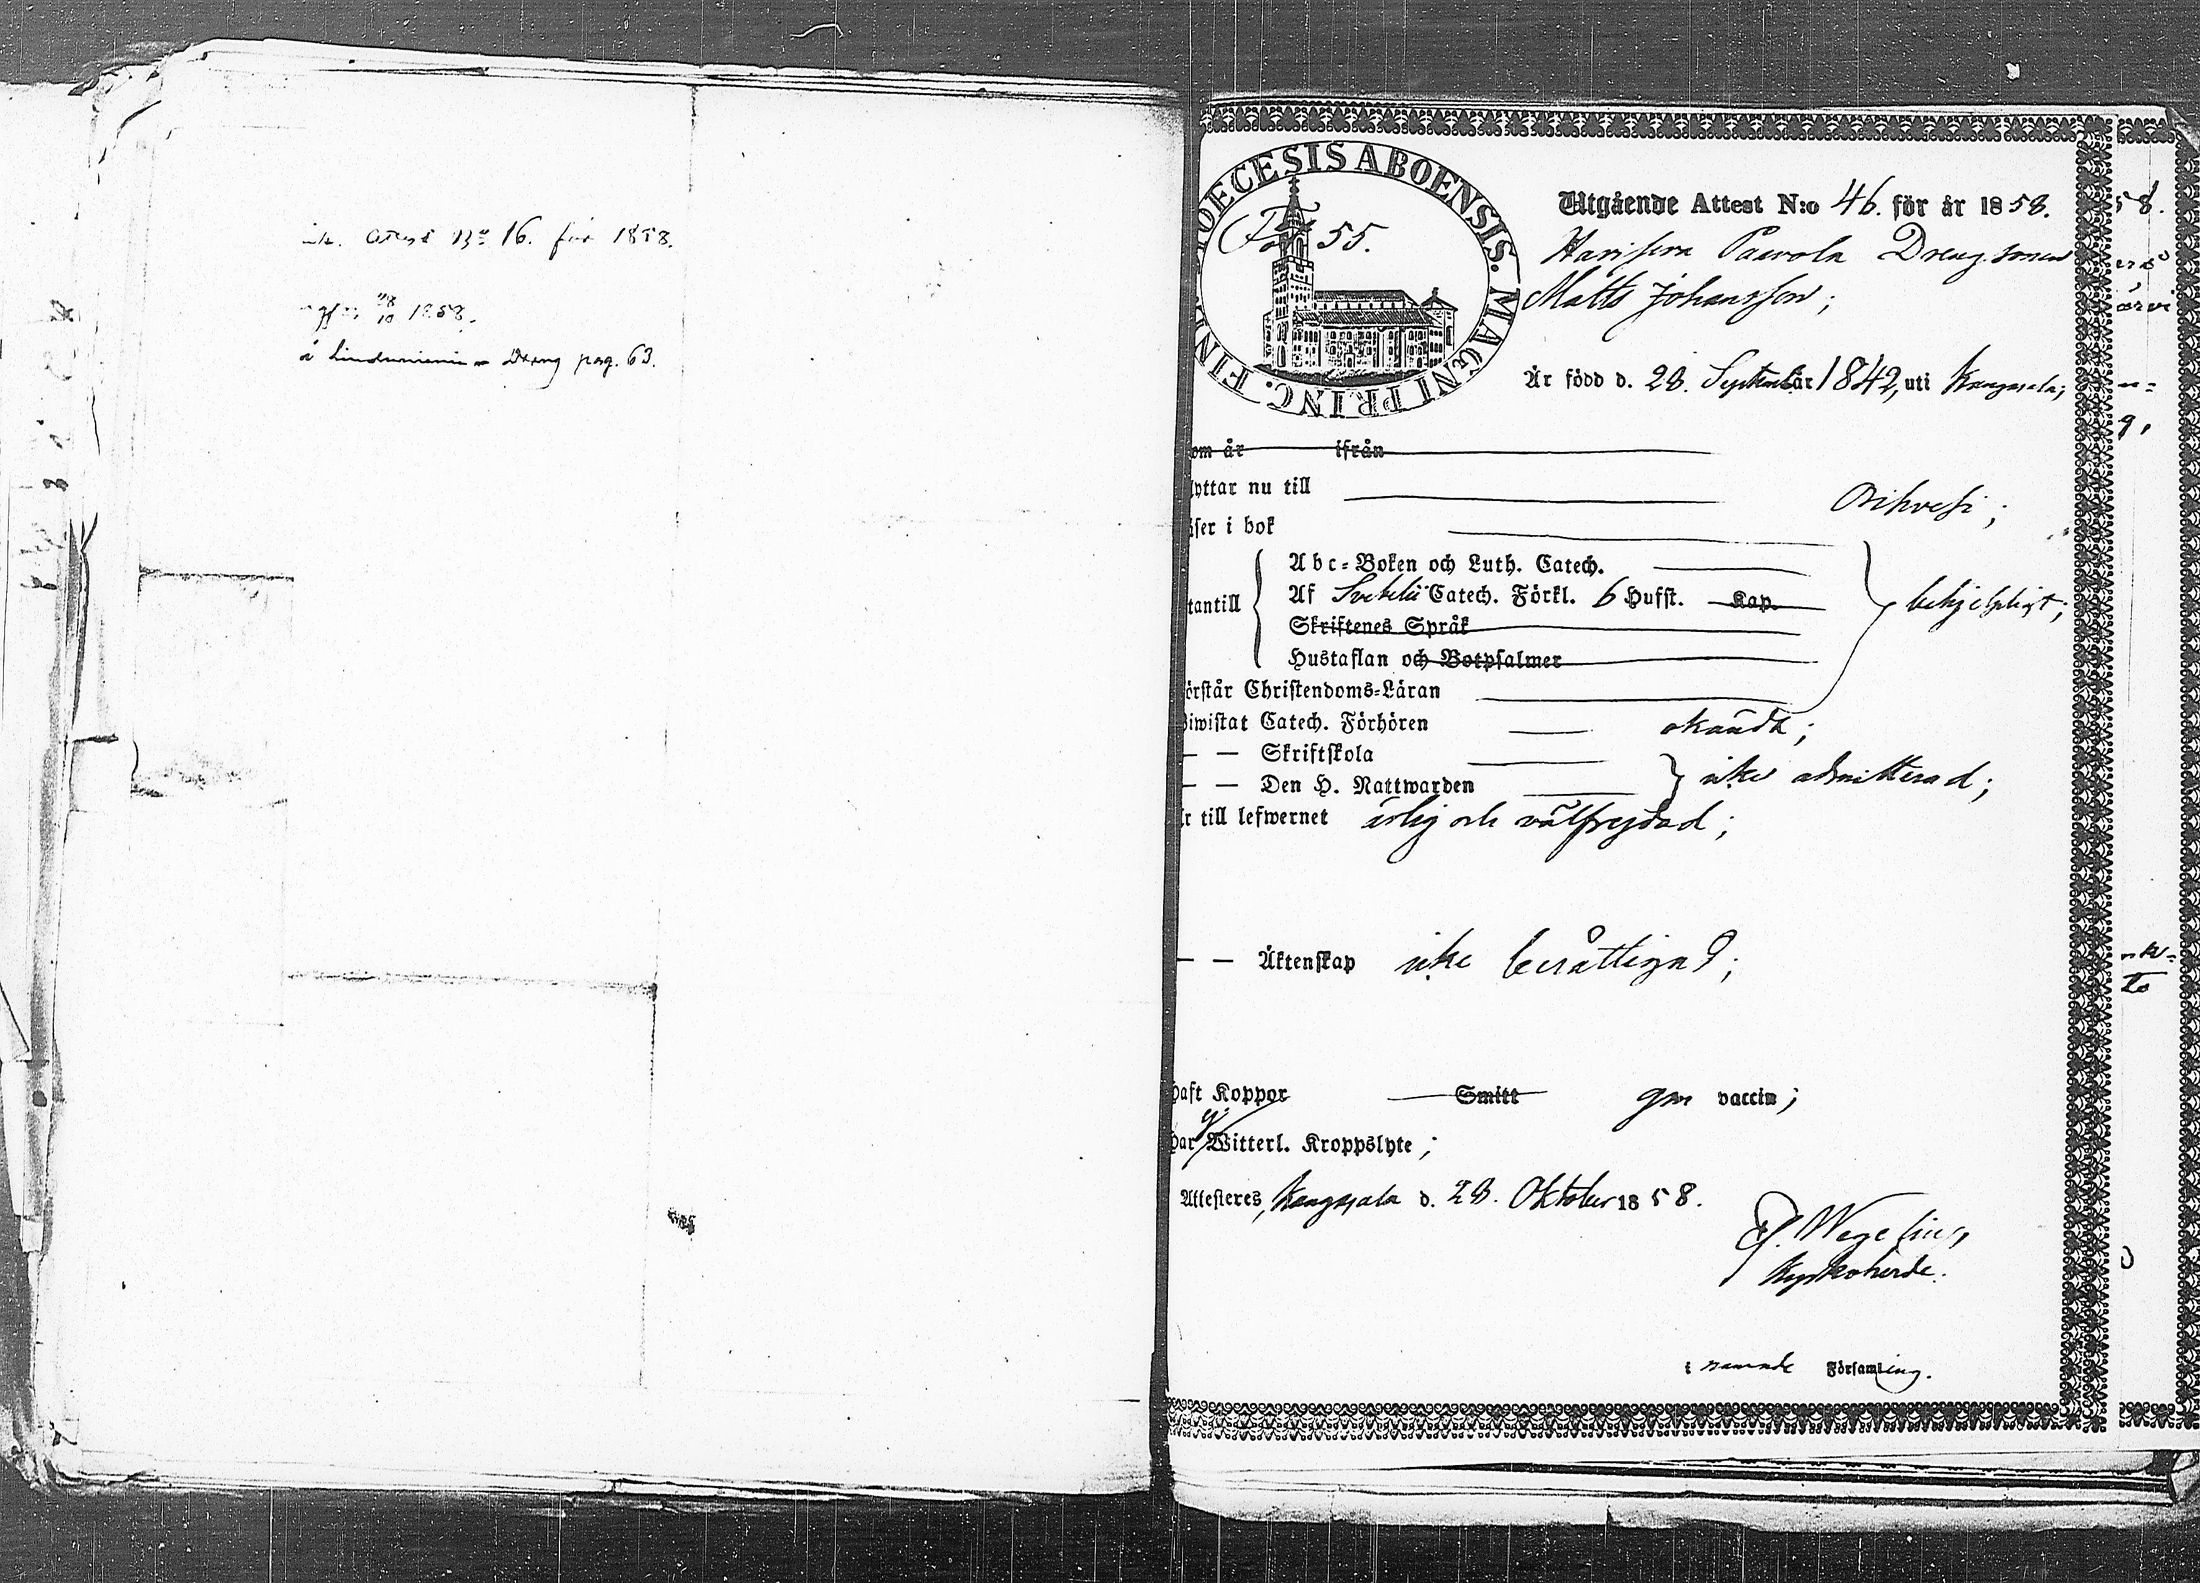 Attest No 16. för 1858.
28/10 1858.
å Lindunniemi Dräng pag. 63.
DIOECESIS ABOENSIS. MAGNI PRINC. FIN
Fol 55.
Utgående Attest N:o 46. för år 1858.
Paavola Drängsonen
Matts Johansson;
Är född d. 28. September 1842, uti Kangasala;
om år ifrån
lyttar nu till Orihvesi;
äser i bok
Abc-Boken och Luth. Catech.
tantill Af Svebelii Catech. Förkl. 6 Hufst. Kap. behjelpligt;
Skriftenes Språk
Hustaflan och Botpsalmer
örstår Christendoms-Läran
biwistat Catech. Förhören okändt;
— — Skriftskola
— — Den H. Nattwarden icke admitterad;
är till lefwernet ärlig och välfrejdad;
— — Äktenskap icke berättigad;
haft Koppor Smitt gm vaccin;
har ej Witterl. Kroppslyte;
Attesteres, Kangasala d. 28. Oktober 1858.
Wegelius,
Kyrkoherde.
i namnde Församling.